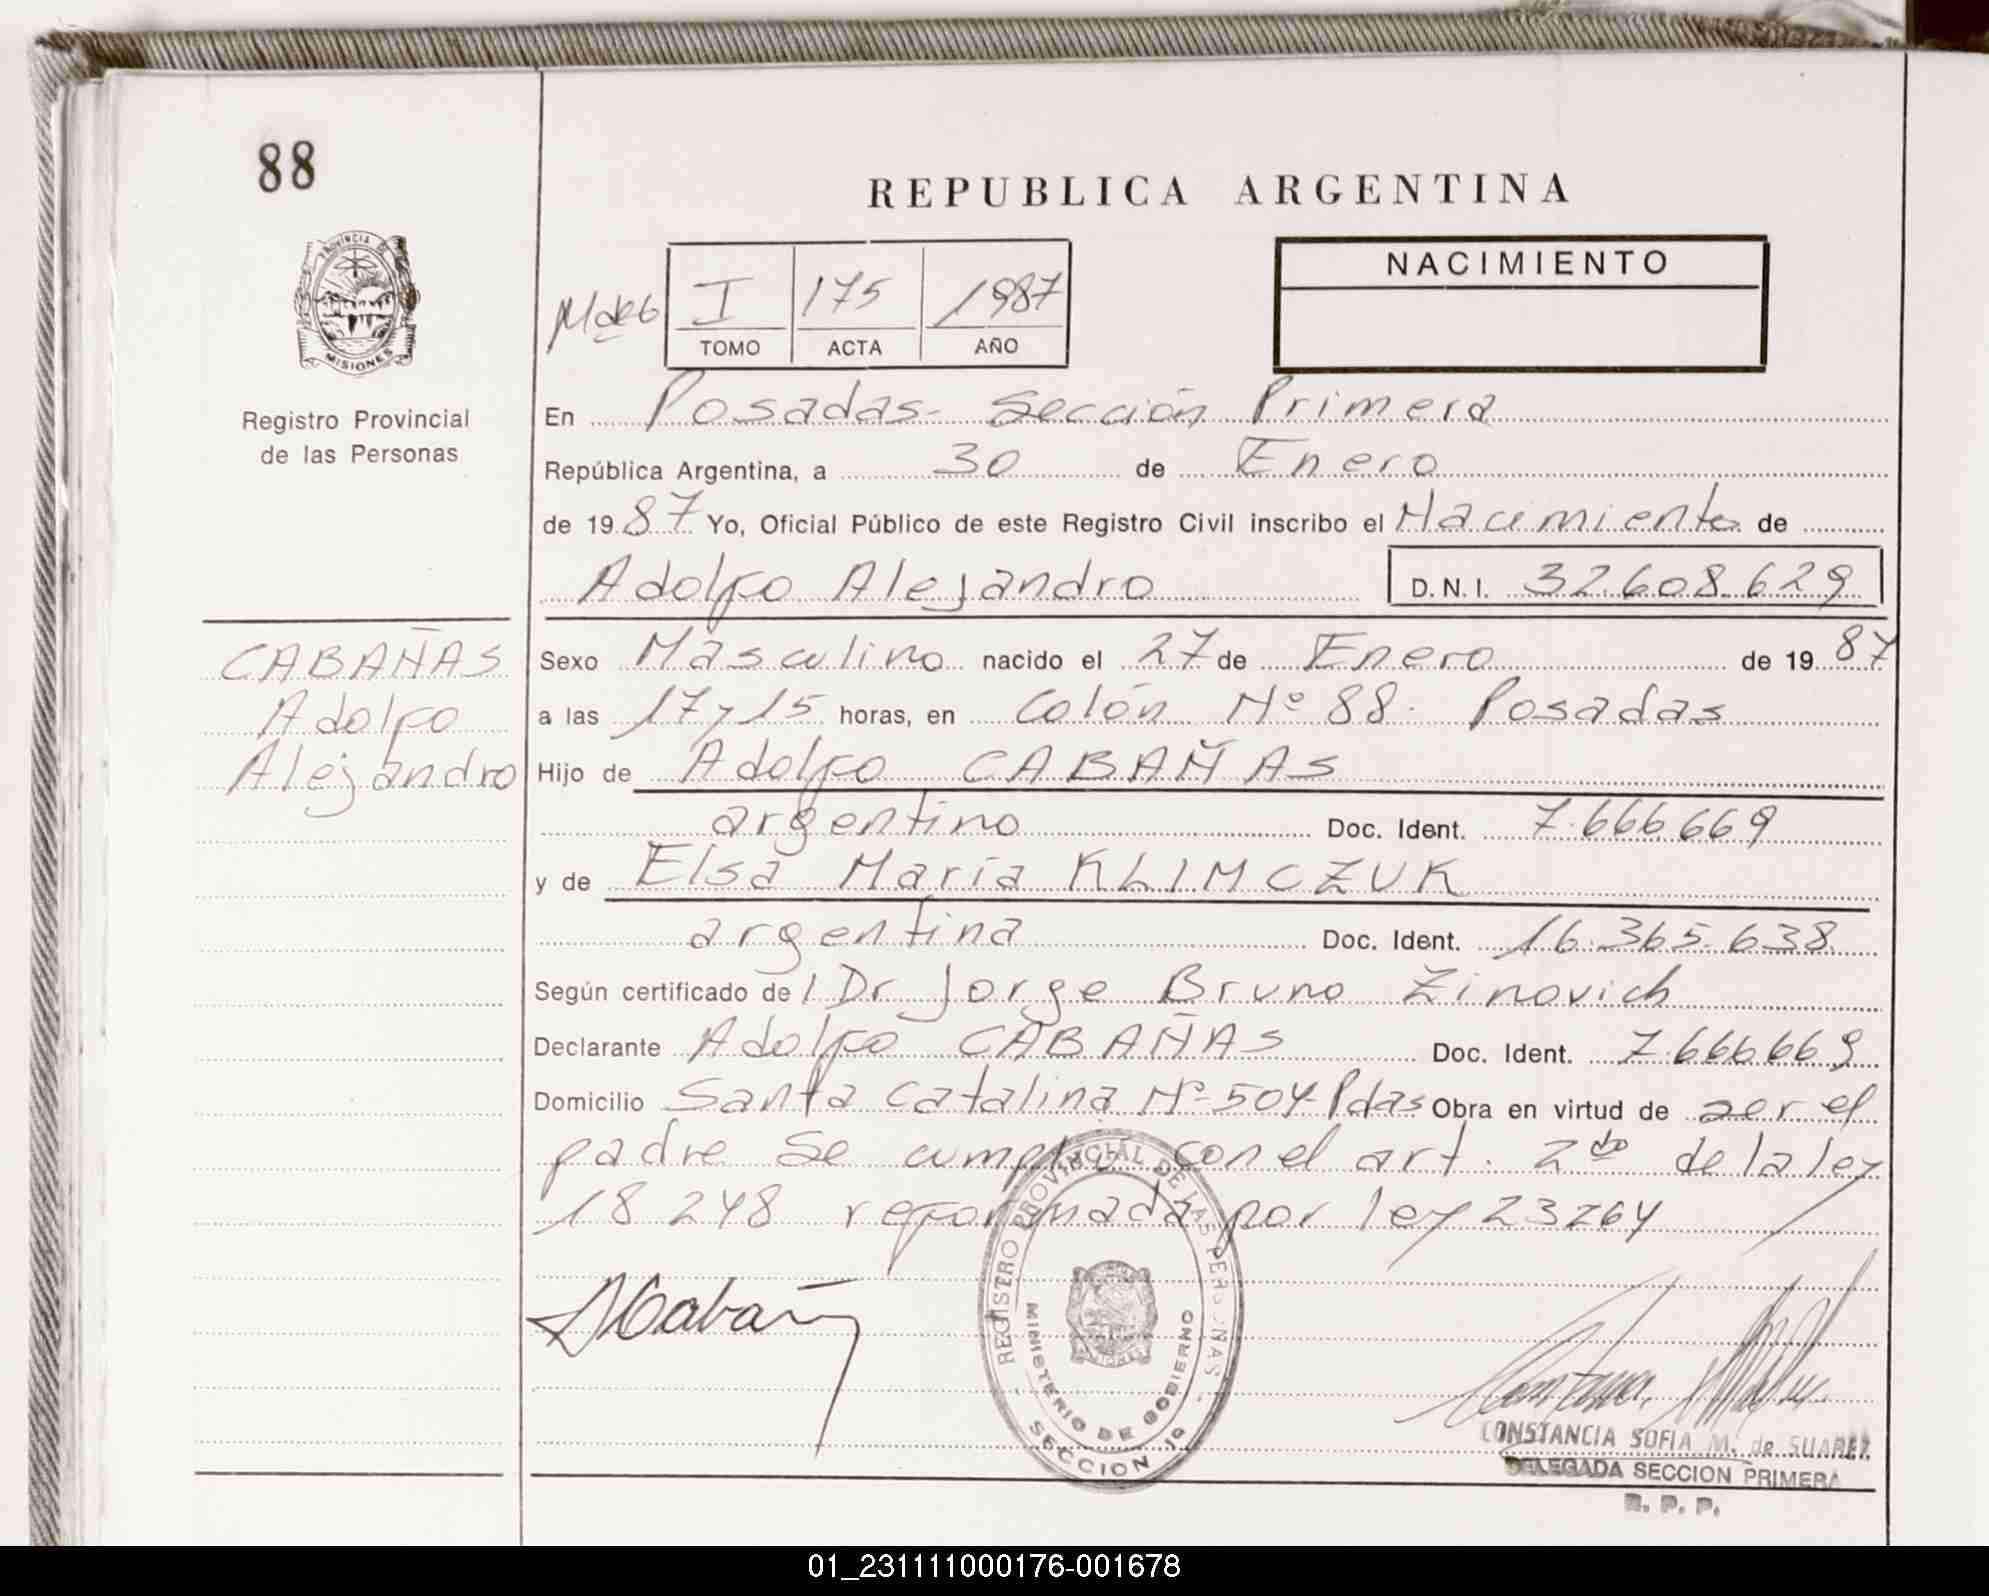 88
REPUBLICA ARGENTINA
PROVINCIA DE
MISIONES
Registro Provincial
de las Personas
I 175 1987
TOMO ACTA AÑO
NACIMIENTO
En Posadas- Sección Primera
República Argentina, a 30 de Enero
de 1987 Yo, Oficial Público de este Registro Civil inscribo el Nacimiento de
Adolfo Alejandro D.N.I. 32.608.629
CABAÑAS
Adolfo
Alejandro
Sexo Masculino nacido el 27 de Enero de 1987
a las 17 y 15 horas, en Colón Nº 88. Posadas
Hijo de Adolfo CABAÑAS
argentino Doc. Ident. 7.666.669
y de Elsa María KLIMCZUK
argentina Doc. Ident. 16.365.638
Según certificado de l Dr Jorge Bruno Zinovich
Declarante Adolfo CABAÑAS Doc. Ident. 7.666.669
Domicilio Santa Catalina Nº 504 Pdas Obra en virtud de ser el
padre Se cumplió con el art. 2do de la ley
18248 reformada por ley 23264
ACabañ
REGISTRO PROVINCIAL DE LAS PERSONAS
MINISTERIO DE GOBIERNO
SECCION 1ª
CONSTANCIA SOFIA M. de SUAREZ
DELEGADA SECCION PRIMERA
R. P. P.
01_231111000176-001678